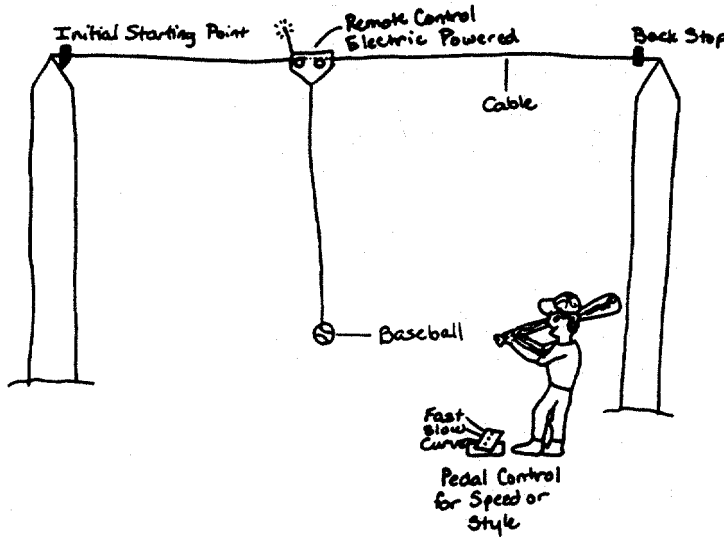 Initial Starting Point
Remote Control
Electric Powered
Back Stop
Cable
Baseball
Fast
Slow
Curve
Pedal Control
for Speed or
Style